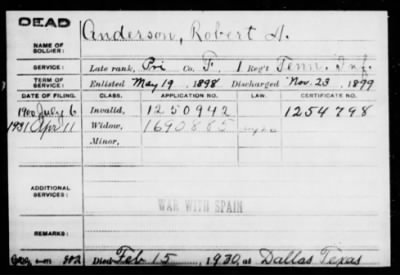 DEAD
Anderson, Robert A.
NAME OF SOLDIER:
SERVICE: Late rank, Pri Co. F, 1 Reg't Tenn. Inf.
TERM OF SERVICE: Enlisted May 19, 1898 Discharged Nov. 23, 1899
DATE OF FILING. CLASS. APPLICATION NO. LAW. CERTIFICATE NO.
1900 July 6 Invalid, 1250942 1254798
1931 Apr 11 Widow, 1690885
Minor,
ADDITIONAL SERVICES:
WAR WITH SPAIN
REMARKS:
Died Feb 15, 1930, at Dallas Texas